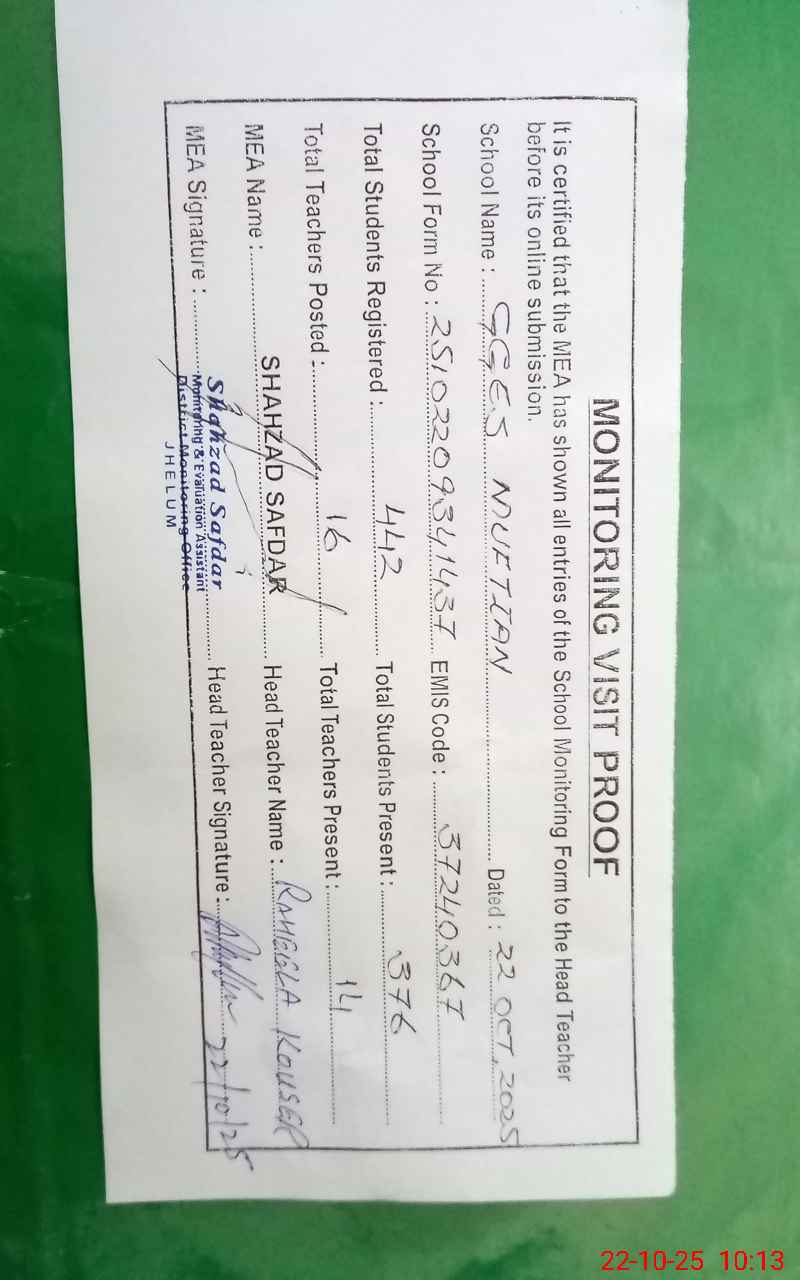 MONITORING VISIT PROOF
It is certified that the MEA has shown all entries of the School Monitoring Form to the Head Teacher
before its online submission.
School Name : GGES MUFTIAN Dated : 22 OCT, 2025
School Form No : 25102209341437 EMIS Code : 37240367
Total Students Registered : 442 Total Students Present : 376
Total Teachers Posted : 16 Total Teachers Present : 14
MEA Name : SHAHZAD SAFDAR Head Teacher Name : RAHEELA KOUSER
MEA Signature : Head Teacher Signature : 22/10/25
Shahzad Safdar
Monitoring & Evaluation Assistant
District Monitoring Office
JHELUM
22-10-25 10:13